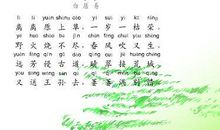 白居易
lí lí yuán shàng cǎo yí suì yì kū róng
离离原上草，一岁一枯荣。
yě huǒ shāo bú jìn chūn fēng chuī yòu shēng
野火烧不尽，春风吹又生。
yuǎn fāng qīn gǔ dào qíng cuì jiē huāng chéng
远芳侵古道，晴翠接荒城。
yòu sòng wáng sūn qù qī qī mǎn bié qíng
又送王孙去，萋萋满别情。